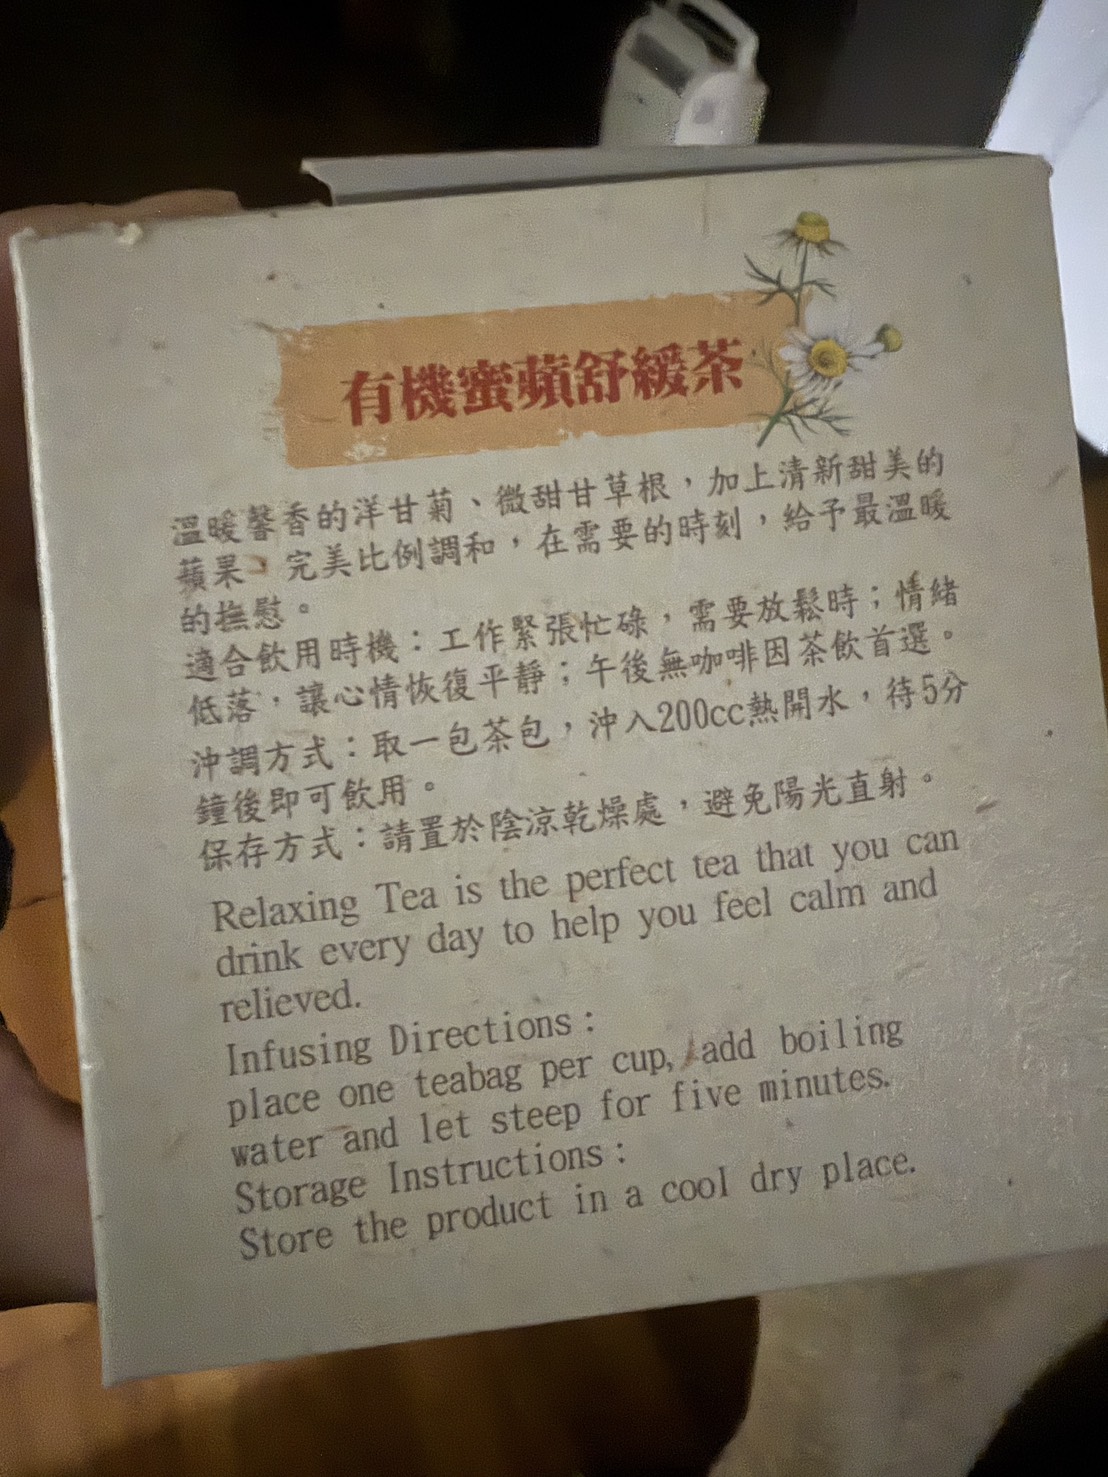 有機蜜蘋舒緩茶
溫暖馨香的洋甘菊、微甜甘草根，加上清新甜美的
蘋果，完美比例調和，在需要的時刻，給予最溫暖
的撫慰。
適合飲用時機：工作緊張忙碌，需要放鬆時；情緒
低落，讓心情恢復平靜；午後無咖啡因茶飲首選。
沖調方式：取一包茶包，沖入200cc熱開水，待5分
鐘後即可飲用。
保存方式：請置於陰涼乾燥處，避免陽光直射。
Relaxing Tea is the perfect tea that you can
drink every day to help you feel calm and
relieved.
Infusing Directions：
place one teabag per cup, add boiling
water and let steep for five minutes.
Storage Instructions：
Store the product in a cool dry place.